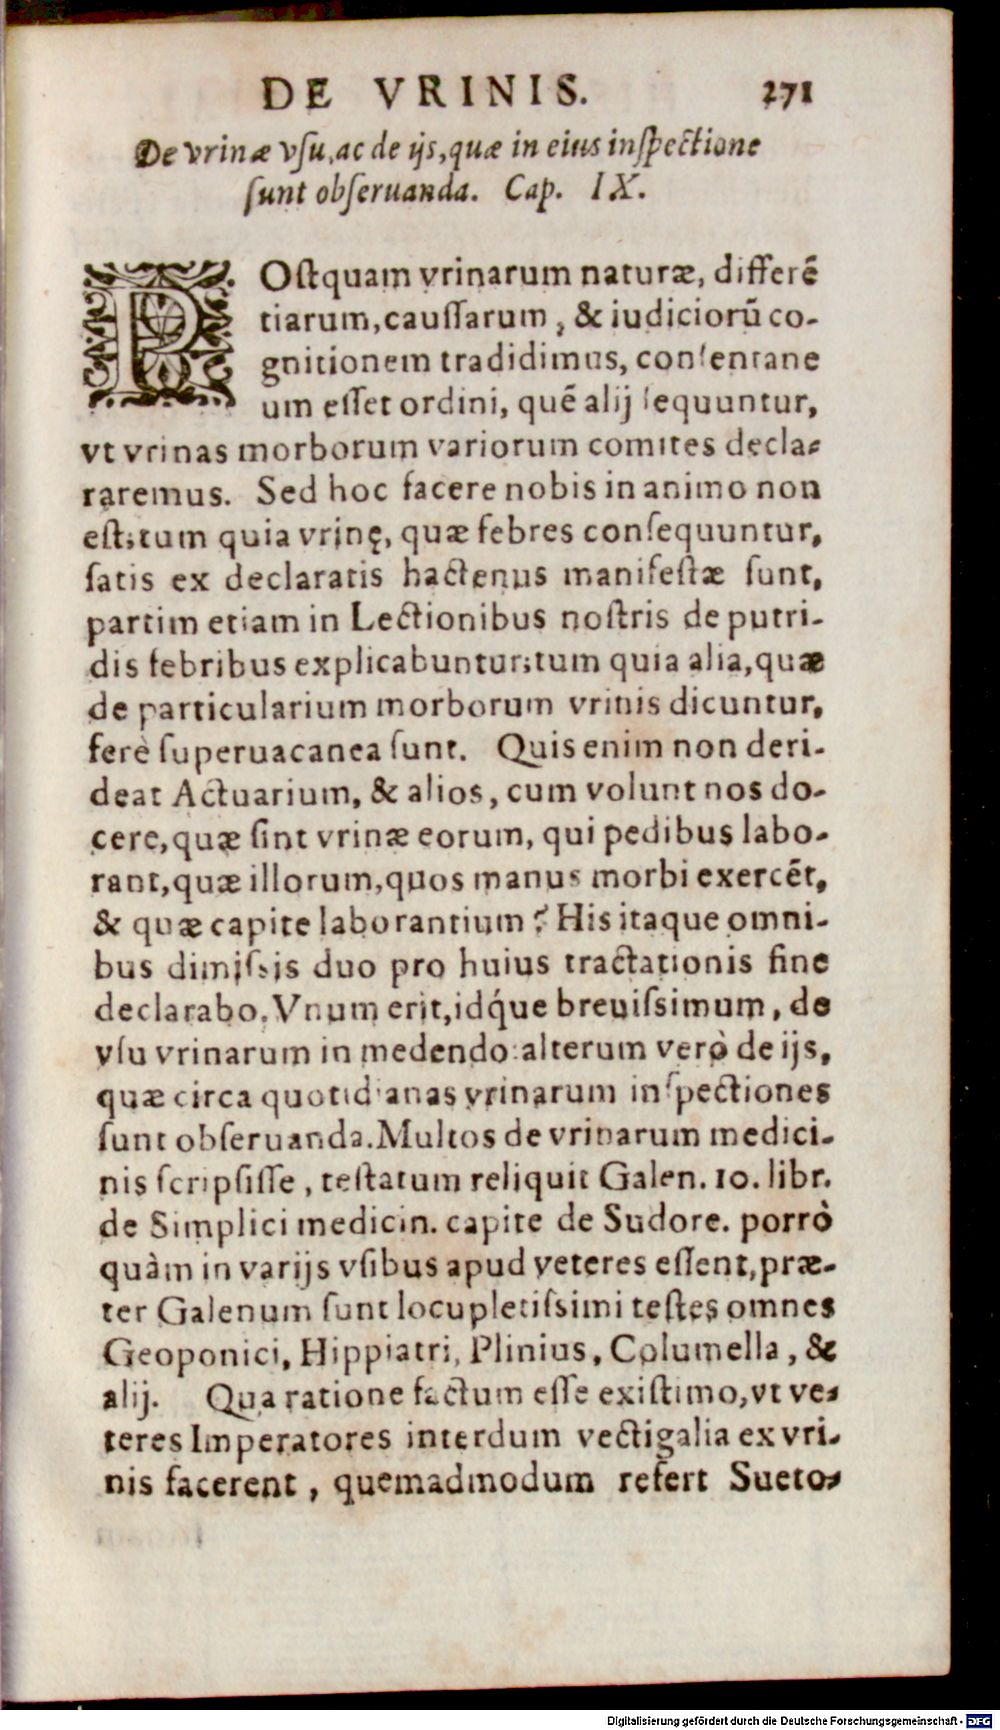 DE VRINIS. 271
De vrinæ vſu, ac de ijs, quæ in eius inſpectione
ſunt obſeruanda. Cap. IX.
POſtquam vrinarum naturæ, differẽ
tiarum, cauſſarum, & iudiciorũ co-
gnitionem tradidimus, conſentane
um eſſet ordini, quẽ alij ſequuntur,
vt vrinas morborum variorum comites decla-
raremus. Sed hoc facere nobis in animo non
eſt; tum quia vrinę, quæ febres conſequuntur,
ſatis ex declaratis hactenus manifeſtæ ſunt,
partim etiam in Lectionibus noſtris de putri-
dis febribus explicabuntur; tum quia alia, quæ
de particularium morborum vrinis dicuntur,
ferè ſuperuacanea ſunt. Quis enim non deri-
deat Actuarium, & alios, cum volunt nos do-
cere, quæ ſint vrinæ eorum, qui pedibus labo-
rant, quæ illorum, quos manus morbi exercẽt,
& quæ capite laborantium? His itaque omni-
bus dimiſsis duo pro huius tractationis fine
declarabo. Vnum erit, idq́ue breuiſsimum, de
vſu vrinarum in medendo: alterum verò de ijs,
quæ circa quotidianas vrinarum inſpectiones
ſunt obſeruanda. Multos de vrinarum medici-
nis ſcripſiſſe, teſtatum reliquit Galen. 10. libr.
de Simplici medicin. capite de Sudore. porrò
quàm in varijs vſibus apud veteres eſſent, præ-
ter Galenum ſunt locupletiſsimi teſtes omnes
Geoponici, Hippiatri, Plinius, Columella, &
alij. Qua ratione factum eſſe exiſtimo, vt ve-
teres Imperatores interdum vectigalia ex vri-
nis facerent, quemadmodum refert Sueto-
Digitalisierung gefördert durch die Deutsche Forschungsgemeinschaft - DFG